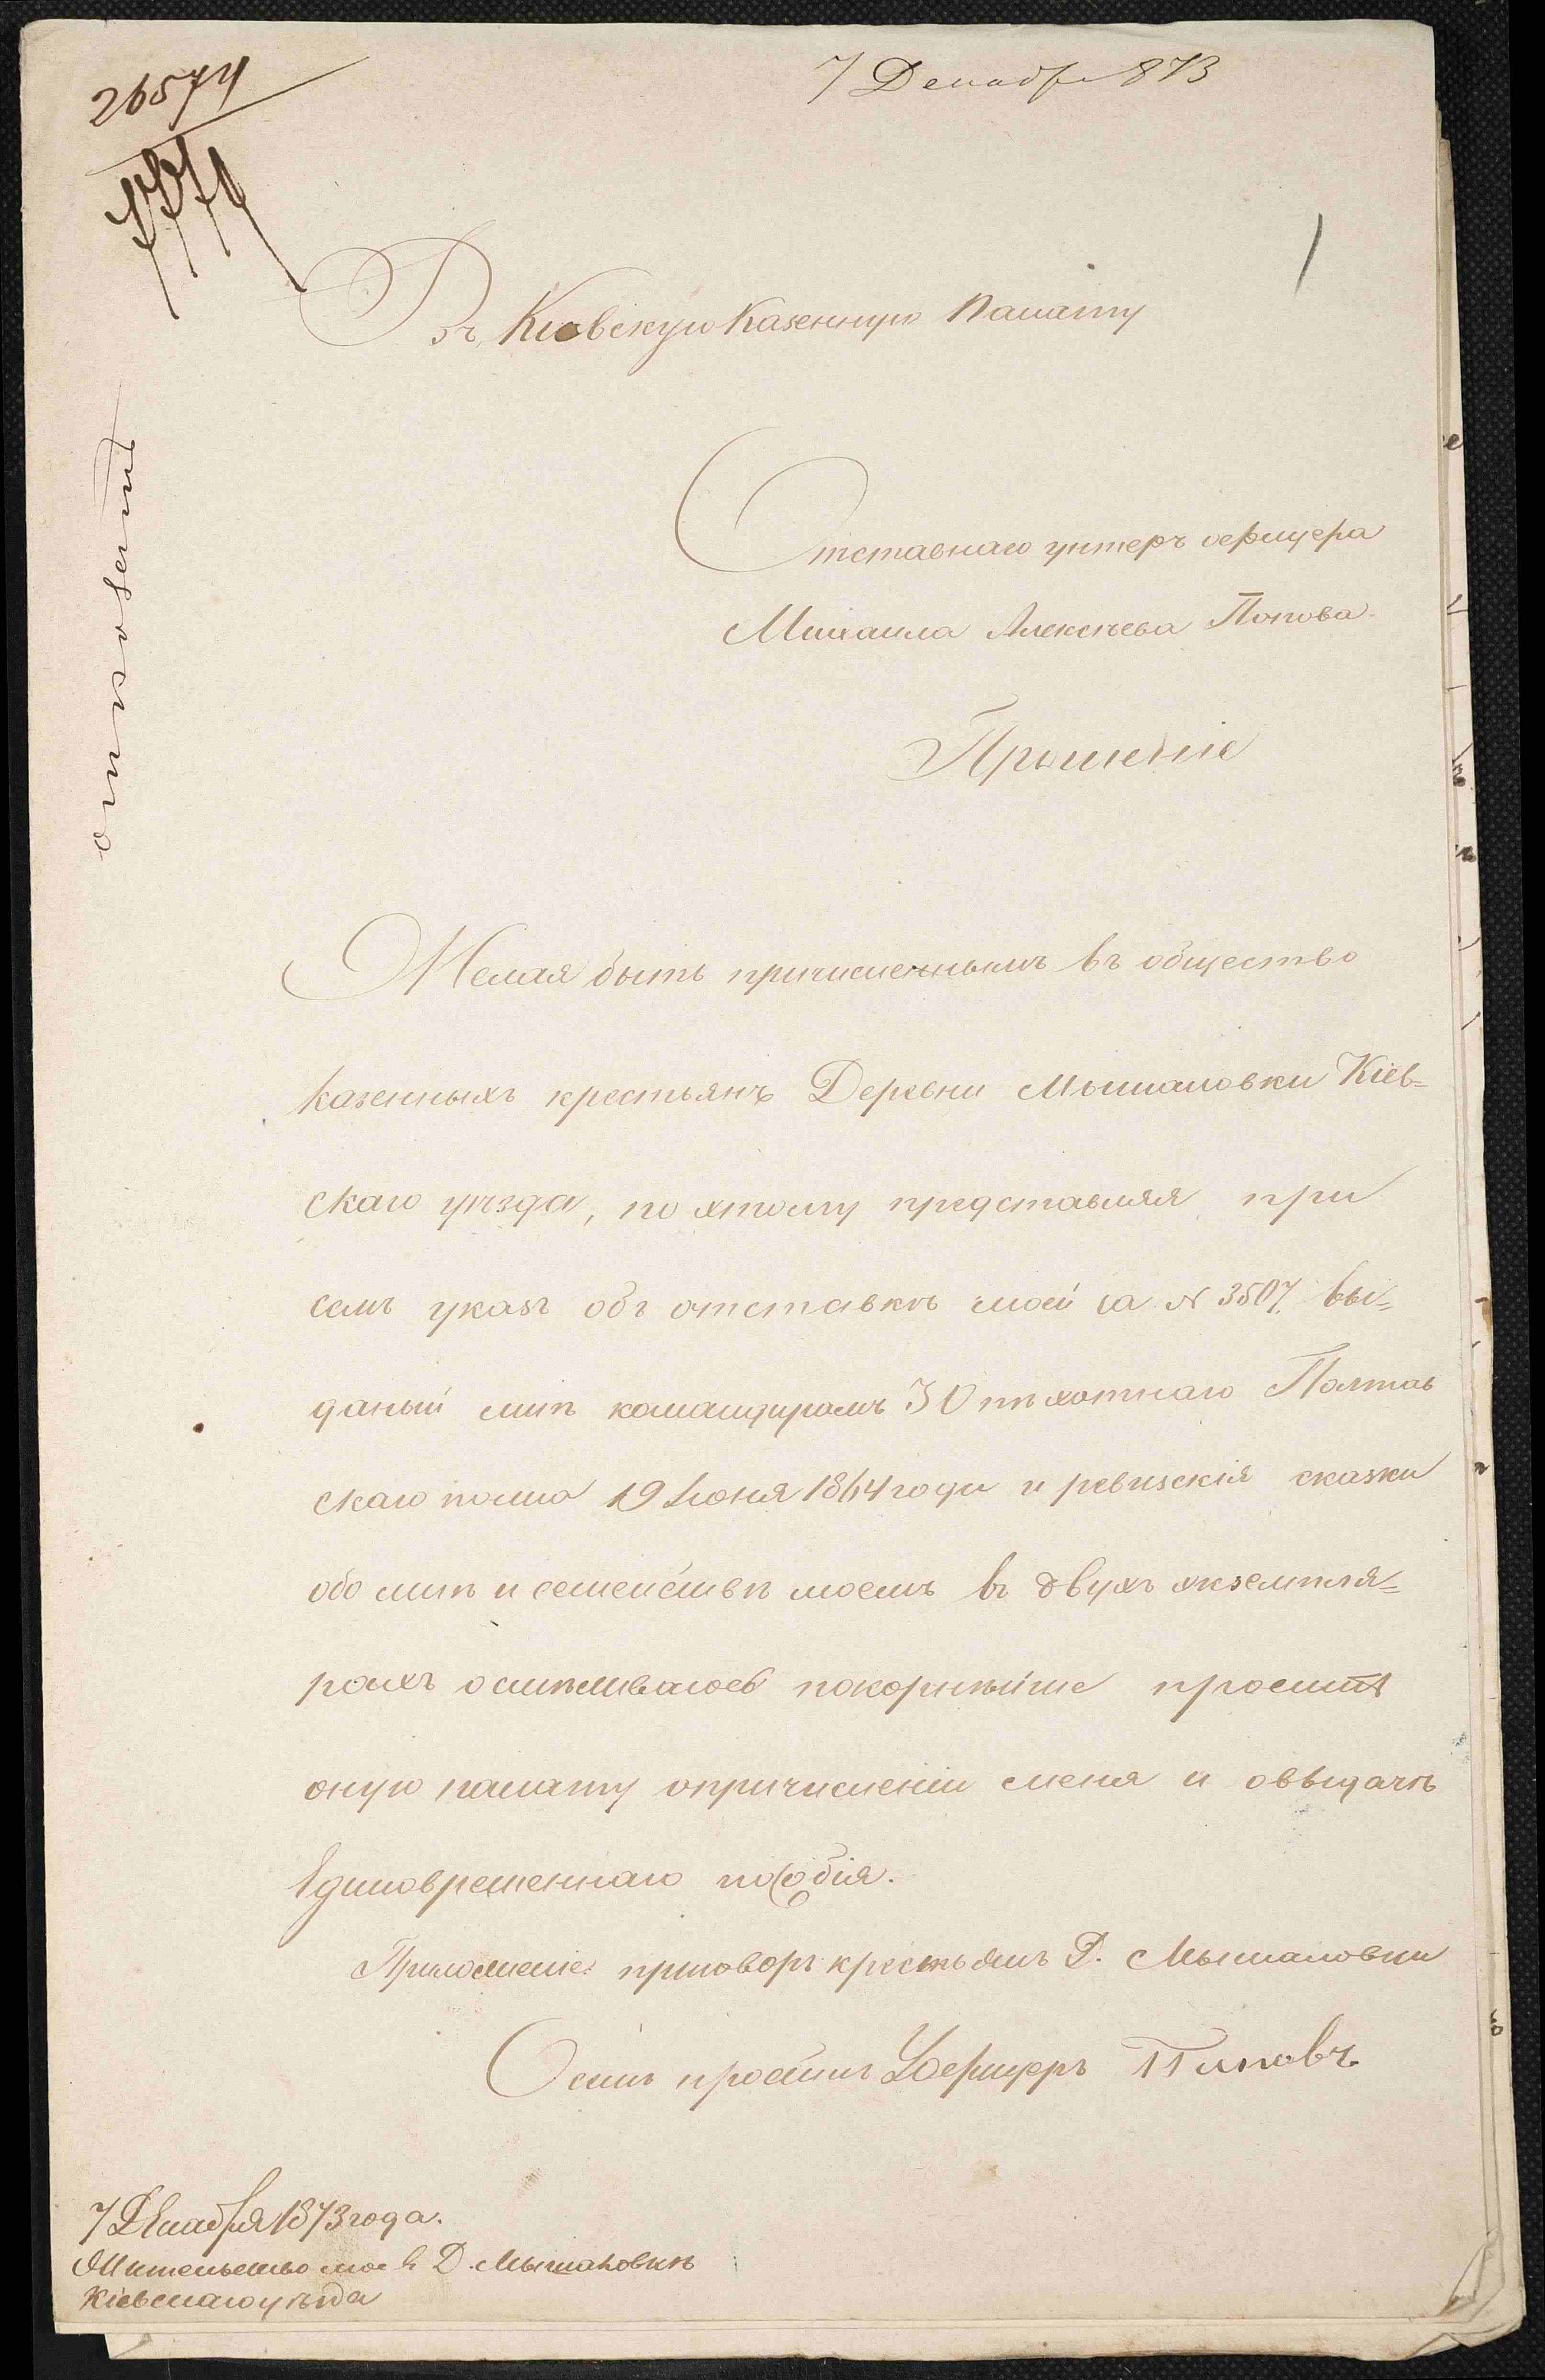 26574
7 Декабря 873
1
Въ Кіевскую Казенную Палату
Отставнаго унтеръ офицера
Михаила Алексѣева Попова
Прошеніе
Желая быть причисленнымъ въ общество
казенныхъ крестьянъ Деревни Мышаловки Кіев=
скаго уѣзда, по этому представляя при
семъ указъ объ отставкѣ моей за № 3507, вы=
даный мнѣ командиромъ 30 пѣхотнаго Полтав
скаго полка 19 Іюня 1864 года и ревизскія сказки
обо мнѣ и семействѣ моемъ въ двухъ экземпля=
рахъ осмѣливаюсь покорнѣйше просить
оную палату опричисленіи меня и овыдачѣ
Единовременнаго пособія.
Приложеніе: приговоръ крестьянъ Д. Мышаловки
Осемъ проситъ Уофицеръ Поповъ
7 Декабря 1873 года.
Жительство мое в Д. Мышаловкѣ
Кіевскаго уѣзда